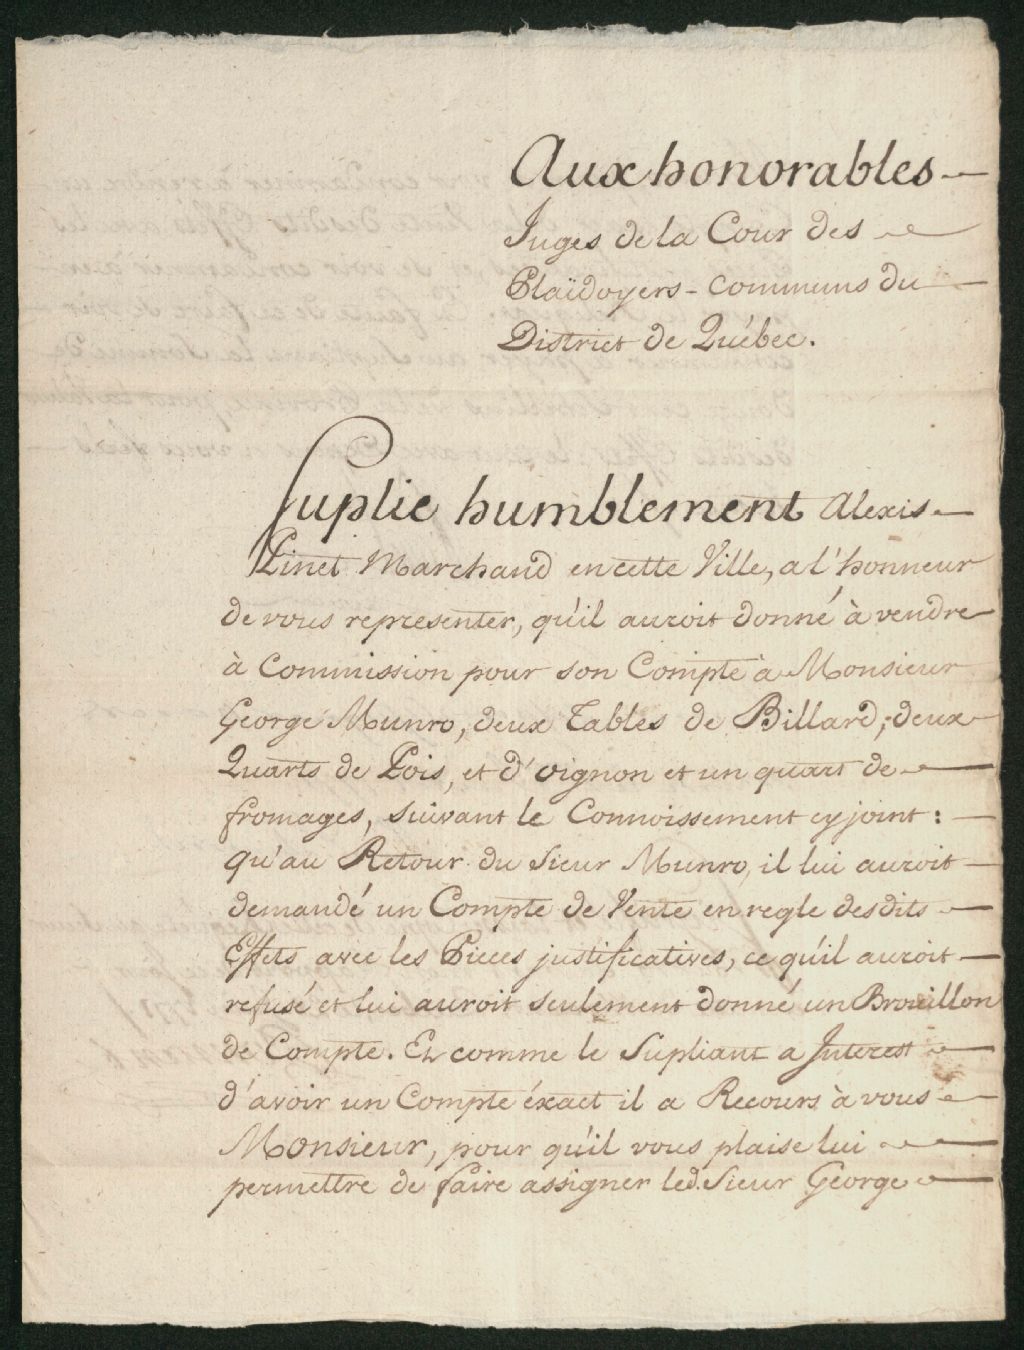 Aux honorables
Juges de la Cour des
Plaïdoyers-Communs du
District de Québec.
Suplie humblement Alexis
Pinet Marchand en cette Ville, a l'honneur
de vous representer, qu'il auroit donné à vendre
à Commission pour son Compte à Monsieur
George Munro, deux Tables de Billard; deux
Quarts de Pois, et d'oignon et un quart de
fromages, suivant le Connoissement cy joint:
qu'au Retour du Sieur Munro, il lui auroit
demandé un Compte de Vente en regle desdits
Effets avec les Pieces justificatives, ce qu'il auroit
refusé et lui auroit seulement donné un Brouillon
de Compte. Et comme le Supliant a Interest
d'avoir un Compte éxact il a Recours à vous
Monsieur, pour qu'il vous plaise lui
permettre de faire assigner led. Sieur George